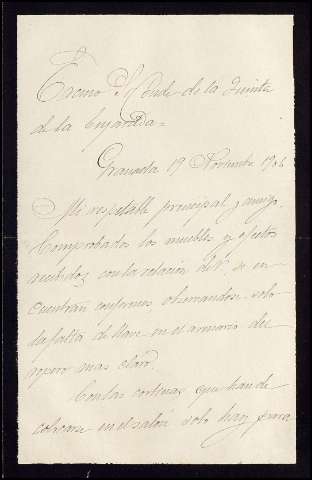 Excmo Sr Conde de la Quinta
de la Enjarada =
Granada 19 Noviembre 1906
Mi respetable principal y amigo.
Comprobados los muebles y efectos
recibidos con la relacion de V. se en
cuentran conformes observandose solo
la falta de llave en el armario del
ropero mas claro.
Con las cortinas que han de
colocarse en el salon solo hay para